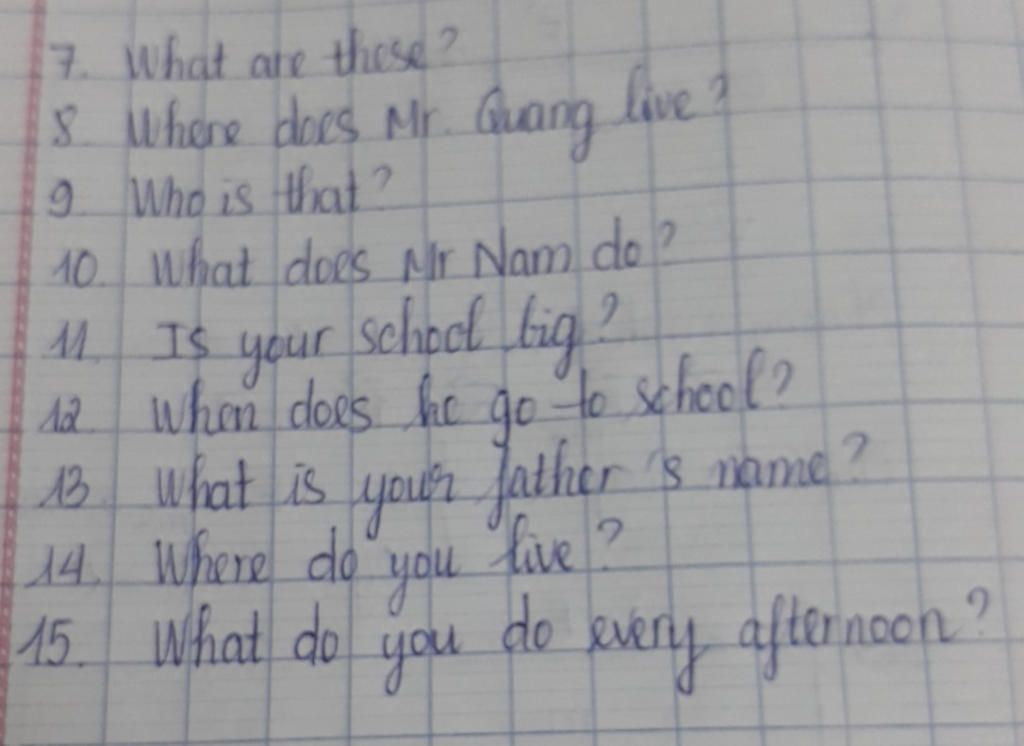 7. What are these?
8. Where does Mr. Quang live?
9. Who is that?
10. What does Mr Nam do?
11. Is your school big?
12. When does he go to school?
13. What is your father's name?
14. Where do you live?
15. What do you do every afternoon?